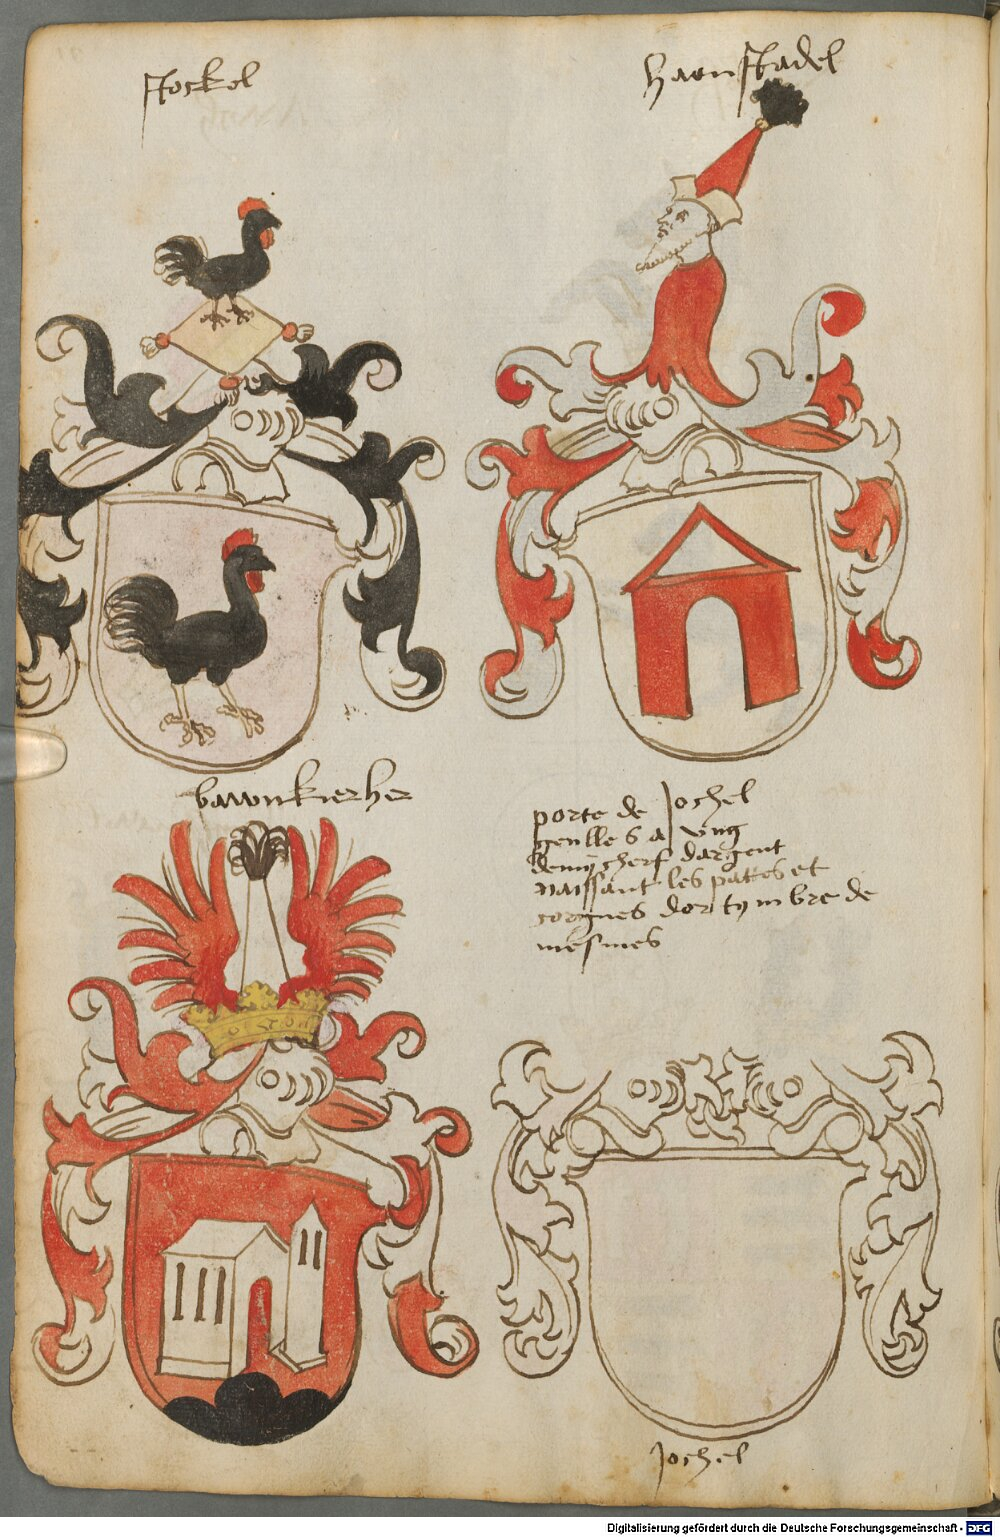 stockel
haonstadel
bawnkierher
porte de Jochel
geulle s a ung
demy cherf dargent
naissant les pattes et
corgnes dor tymbre de
mesmes
Jochel
Digitalisierung gefördert durch die Deutsche Forschungsgemeinschaft - DFG